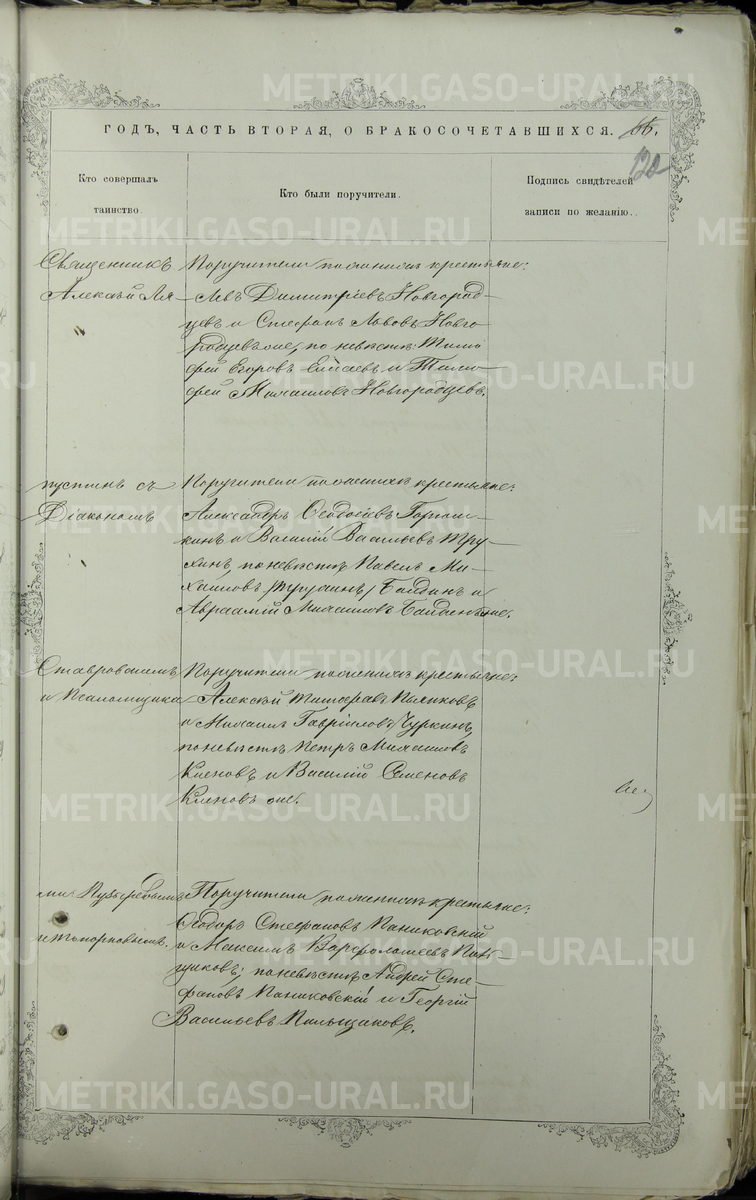 ГОДЪ, ЧАСТЬ ВТОРАЯ, О БРАКОСОЧЕТАВШИХСЯ.
120
Кто совершалъ таинство.
Кто были поручители.
Подпись свидѣтелей записи по желанію.
Священникъ
Алексѣй Ля-
Поручители по женихѣ крестьяне:
Левъ Димитріевъ Новгород-
цевъ и Стефанъ Львовъ Новго-
родцевъ же, по невѣстѣ: Тимо-
фей Егоровъ и Тимо-
фей Михаиловъ Новгородцевъ.
пустинъ съ
Діакономъ
Поручители по женихѣ крестьяне:
Александръ Ѳеодосіевъ
и Василій Васильевъ Тру-
хинъ, по невѣстѣ Павелъ Ми-
хаиловъ и
Авраамій Михаиловъ
Ставровскимъ
и Псаломщика
Поручители по женихѣ крестьяне:
Алексѣй Тимофѣевъ
и Михаилъ Гавріиловъ Чуркинъ,
по невѣстѣ Петръ Михаиловъ
Кленовъ и Василій Семеновъ
Кленовъ же.
ми
и Топорковымъ.
Поручители по женихѣ крестьяне:
Ѳеодоръ Стефановъ Паниковскій
и Максимъ Варфоломеевъ
по невѣстѣ Андрей Сте-
фановъ Паниковскій и Георгій
Васильевъ Пильщиковъ.
METRIKI.GASO-URAL.RU